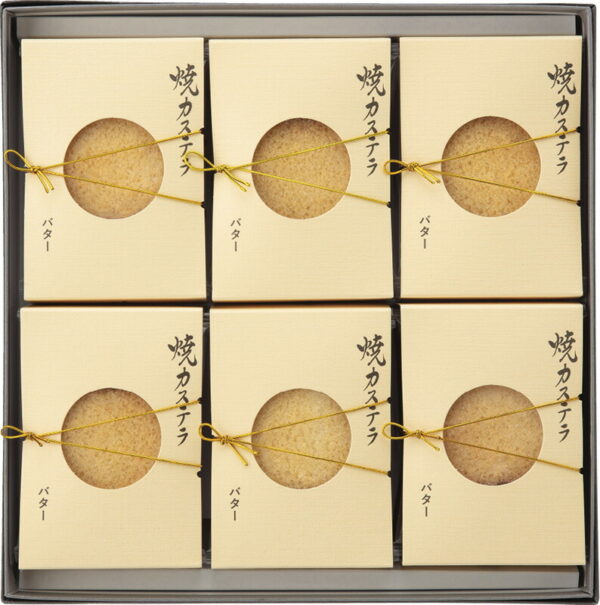 焼カステラ
バター
焼カステラ
バター
焼カステラ
バター
焼カステラ
バター
焼カステラ
バター
焼カステラ
バター